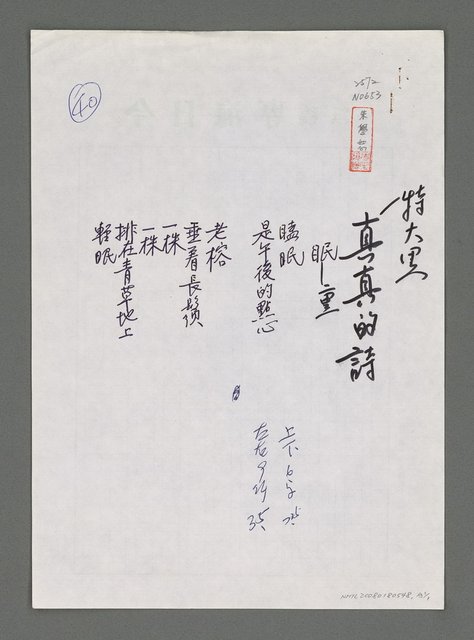 40
25/2
N0653
特大黑
真真的詩
眠重
瞌眠
是午後的點心
老榕
垂着長鬚
一株
一株
排在青草地上
輕眠
上下6字
左右9行
NMTL20080180548